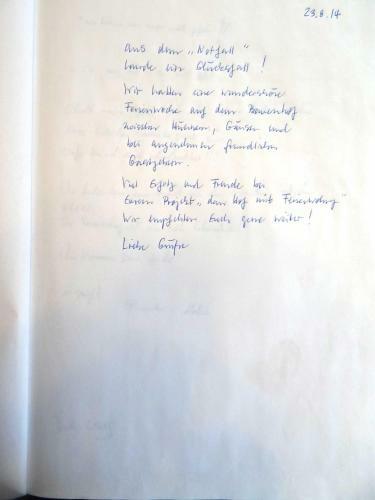 23.8.14
Aus dem „Notfall"
wurde ein Glücksfall!
Wir hatten eine wunderschöne
Ferienwoche auf dem Bauernhof
zwischen Hühnern, Gänsen und
bei angenehmen freundlichen
Gastgebern.
Viel Erfolg und Freude bei
Eurem Projekt „dem Hof mit Ferienwohng"
Wir empfehlen Euch gerne weiter!
Liebe Grüße